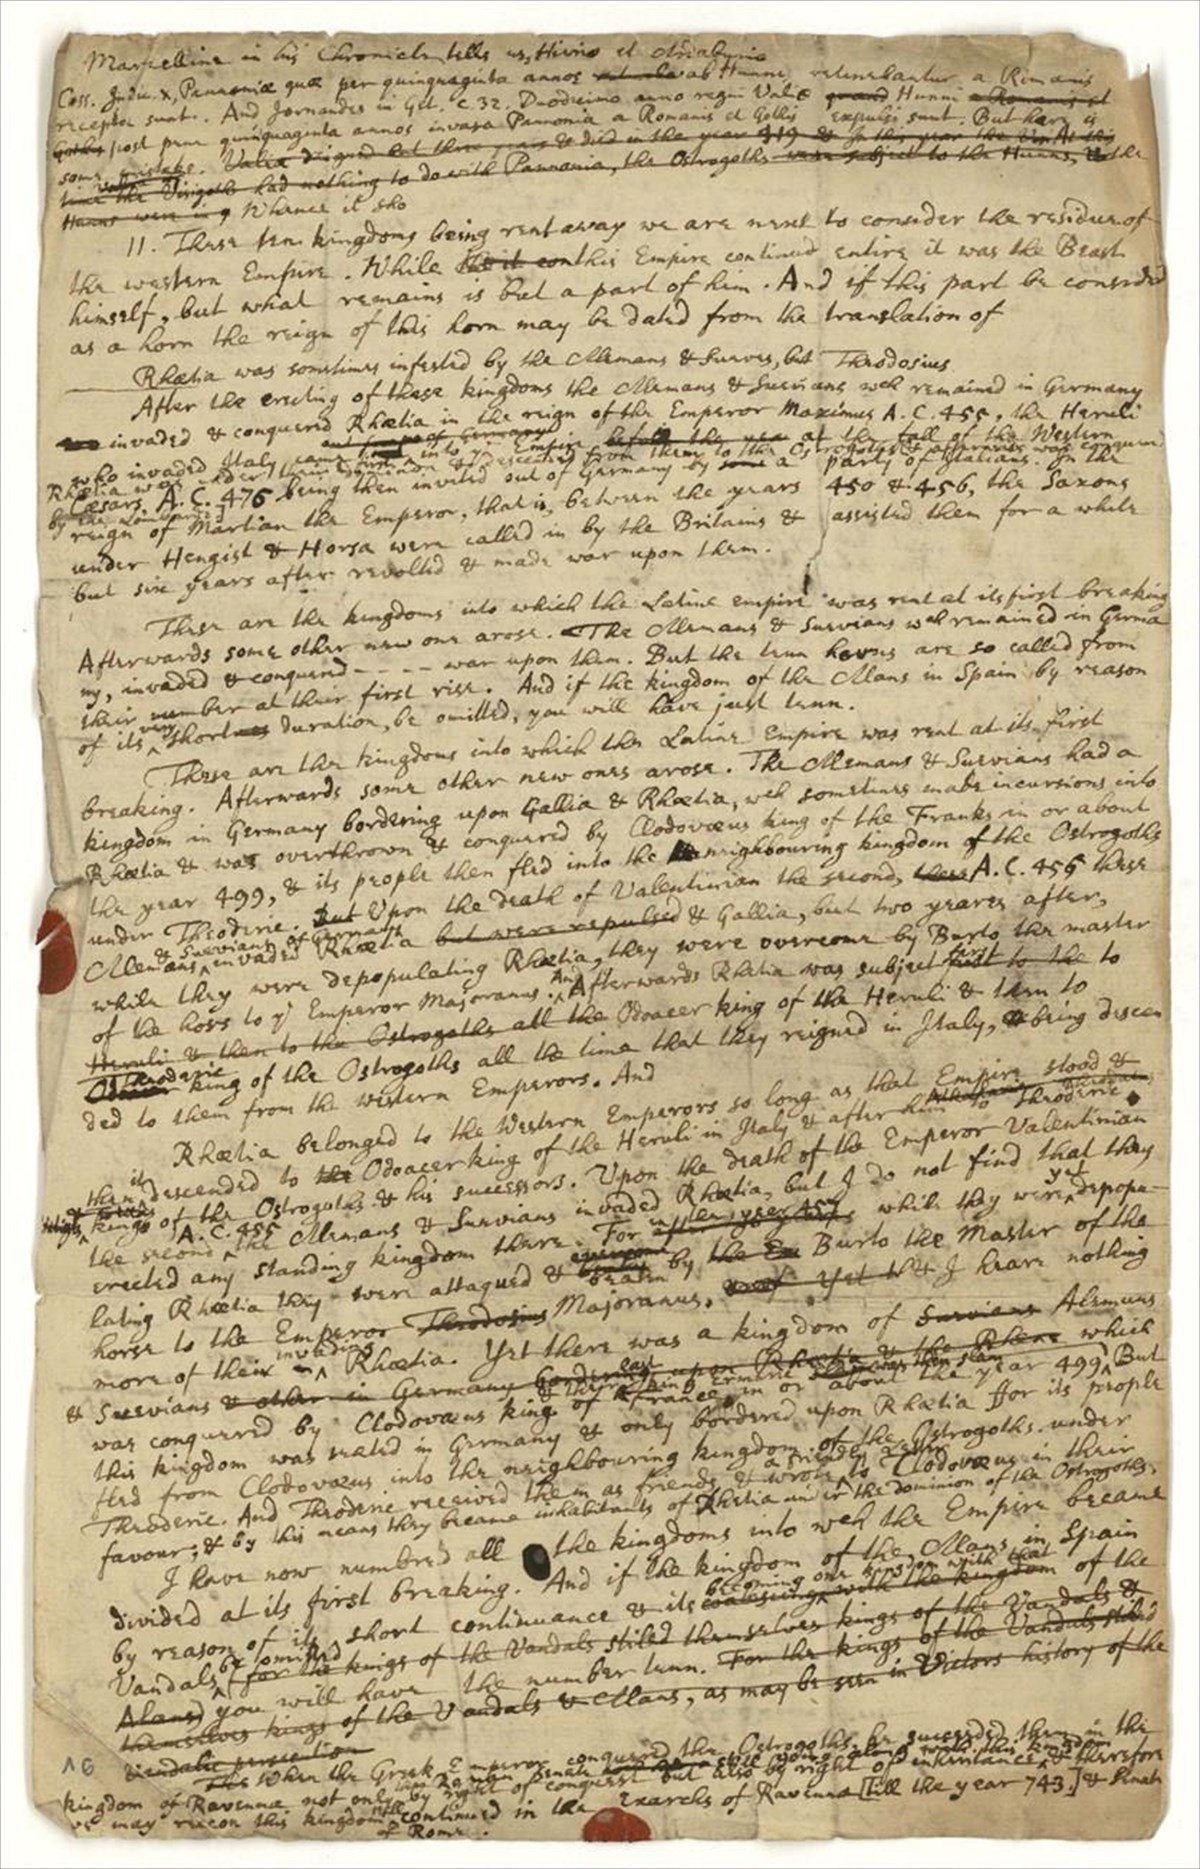 Marcelline in his Chronicle tells us, Hierio et Ardaburio
Coss. Indic. X, Pannoniæ quæ per quinquaginta annos ab Hunnis retinebantur a Romanis
receptæ sunt. And Jornandes in Get. c. 32. Duodecimo anno regni Valiæ quand Hunni a Romanis et
Gothis post pene quinquaginta annos invasa Pannonia a Romanis et Gothis expulsi sunt. But here is
some mistake. Valia reigned but three years & died in the year 419 & In this year the
time the Visigoths had nothing to do with Pannonia, the Ostrogoths were subject to the Hunns, & the
Hunns were in Whence it sho
11. These ten kingdoms being rent away we are next to consider the residue of
the western Empire. While this Empire continued entire it was the Beast
himself, but what remains is but a part of him. And if this part be considered
as a horn the reign of this horn may be dated from the translation of
Rhætia was sometimes infested by the Alemans & Sueves, but Theodosius
After the erecting of these kingdoms the Alemans & Suevians wch remained in Germany
invaded & conquered Rhætia in the reign of the Emperor Maximus A.C. 455, the Heruli
who invaded Italy before the year at the fall of the Western
Rhætia was under their dominion & descended from them to the Ostrogoths & afterwards was conquered
Cæsars A.C. 476 being then invited out of Germany by some a party of Italians. In the
by the Lombards
reign of Martian the Emperor, that is, between the years 450 & 456, the Saxons
under Hengist & Horsa were called in by the Britains & assisted them for a while
but six years after revolted & made war upon them.
These are the kingdoms into which the Latine empire was rent at its first breaking
Afterwards some other new one arose. The Alemans & Suevians wch remained in Germa
ny, invaded & conquered - - - - war upon them. But the tenn horns are so called from
their number at their first rise. And if the kingdom of the Alans in Spain by reason
of its very short duration, be omitted, you will have just tenn.
These are the kingdoms into which the Latine Empire was rent at its first
breaking. Afterwards some other new ones arose. The Alemans & Suevians had a
kingdom in Germany bordering upon Gallia & Rhætia, wch sometimes made incursions into
Rhætia & was overthrown & conquered by Clodovæus king of the Franks in or about
the year 499, & its people then fled into the neighbouring kingdom of the Ostrogoths
under Theoderic. But Upon the death of Valentinian the second, A.C. 455 these
& Suevians of Germany
Alemans invaded Rhætia but were repulsed & Gallia, but two yeares after,
while they were depopulating Rhætia, they were overcome by Burto the master
of the hors to ye Emperor Majoranus. And Afterwards Rhætia was subject first to the to
Heruli & then to the Ostrogoths all the Odoacer king of the Heruli & then to
Theoderic king of the Ostrogoths all the time that they reigned in Italy, & being descen
ded to them from the western Emperors. And
Rhætia belonged to the Western Emperors so long as that Empire stood &
then it descended to the Odoacer king of the Heruli in Italy & after him to Theoderic
kings of the Ostrogoths & his successors. Upon the death of the Emperor Valentinian
the second A.C. 455 the Alemans & Suevians invaded Rhætia, but I do not find that they
erected any standing kingdom there. For in the year 457 while they were yet depopu-
lating Rhætia they were attaqued & overcome beaten by the Em Burto the Master of the
horse to the Emperor Theodosius Majoranus. Yet & I heare nothing
more of their invading Rhætia. Yet there was a kingdom of Suevians Alemans
& Suevians & other in Germany bordering upon Rhætia & the Rhene which
was conquered by Clodovæus king of France in or about the year 499. But
this kingdom was seated in Germany & only bordered upon Rhætia ffor its people
fled from Clodovæus into the neighbouring kingdom of the Ostrogoths under
Theoderic. And Theoderic received them as friends & wrote a friendly Letter to Clodovæus in their
favour; & by this means they became inhabitants of Rhætia under the dominion of the Ostrogoths.
I have now numbred all the kingdoms into wch the Empire became
divided at its first breaking. And if the kingdom of the Alans in Spain
by reason of its short continuance & its coalescing becoming one kingdom with that with the kingdom of the
Vandals be omitted (for the kings of the Vandals stiled themselves kings of the Vandals &
Alans) you will have the number tenn. For the kings of the Vandals stiled
themselves kings of the Vandals & Alans, as may be seen in Victors history of the
Vandalic persecution
When the Greek Emperor conquered the Ostrogoths, he succeeded them in the
kingdom of Ravenna not only by right of conquest but also by right of inheritance, & therefore
we may recon this kingdom continued in the Exarchs of Ravenna [till the year 743] & Senate
of Rome.
^6